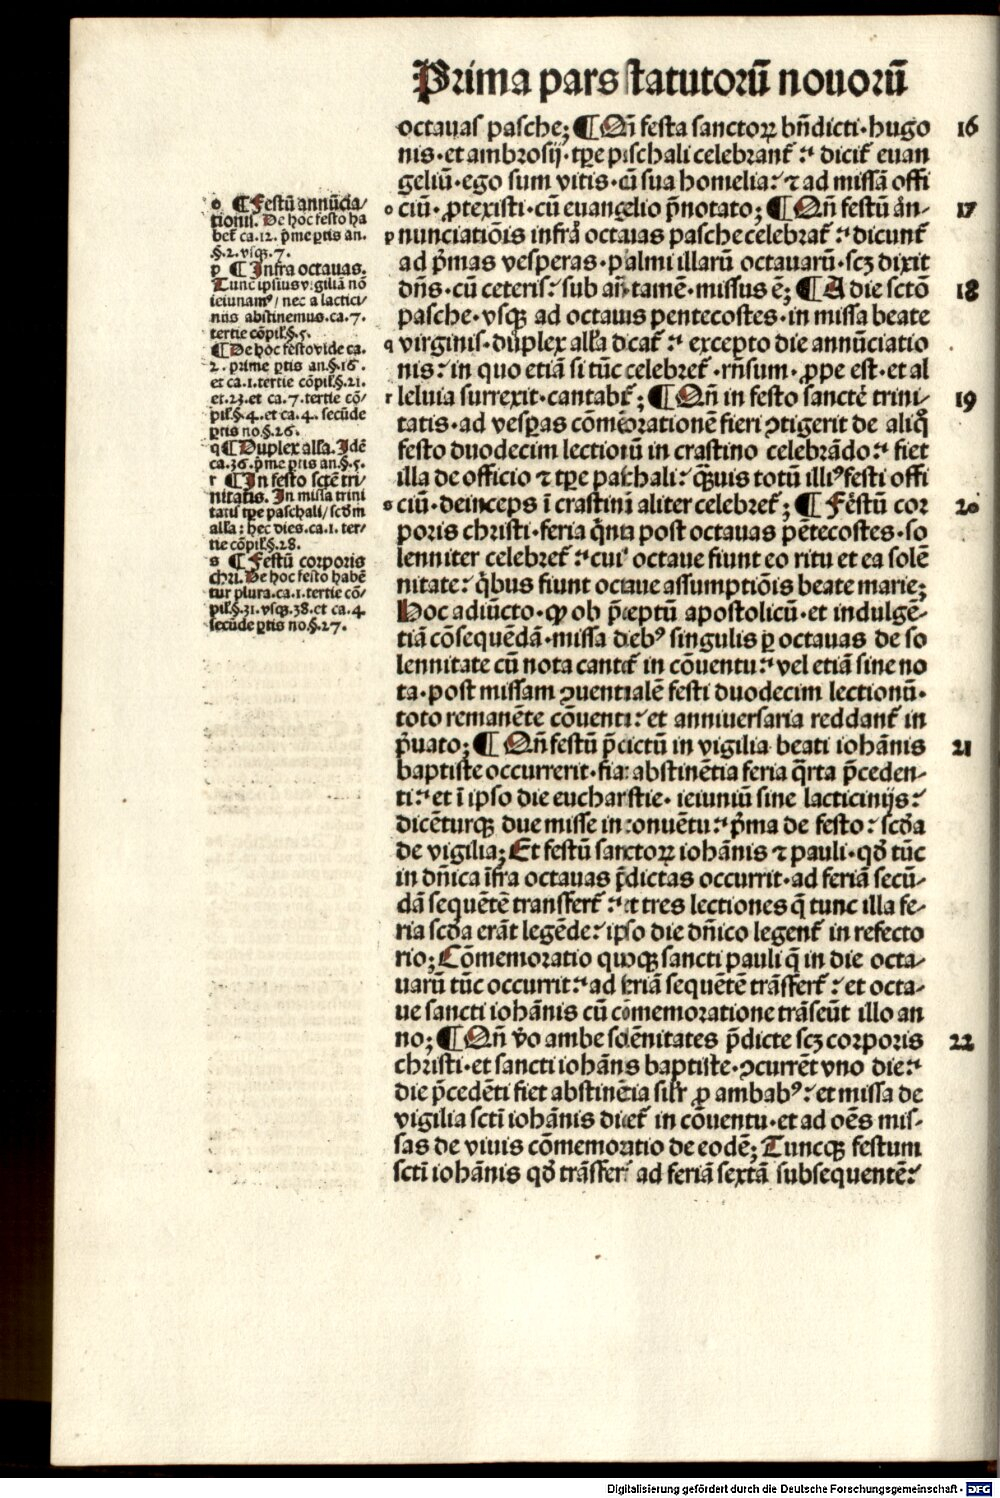 Prima pars statutorū nouorū
octauas pasche; ¶ Qñ festa sanctoꝝ bñdicti·hugo 16
nis·et ambrosij·tꝑe paschali celebranť·dicit́ euan
geliū·ego sum vitis·cū sua homelia:ꞇ ad missā offi
o ciū·ꝓtexisti·cū euangelio p̄notato; ¶ Qñ festū an- 17
p nunciatiōis infra octauas pasche celebrať:dicunť
ad p̄mas vesperas·psalmi illarū octauarū·scꝫ dixit
dñs·cū ceteris:sub añ·tamē·missus ē; ¶ A die sctō 18
pasche·vsqꝫ ad octauas pentecostes·in missa beate
q virginis·duplex alľa dicať:excepto die annūciatio
nis:in quo etiā si tūc celebreť·rñsum·ꝓpe est·et al
r leluia surrexit·cantabiť; ¶ Qñ in festo sancte trini- 19
tatis·ad vesꝑas cōmēorationē fieri ꝯtigerit de aliq̊
festo duodecim lectionū in crastino celebrādo:fiet
illa de officio ꞇ tꝑe paschali:q̄uis totū illiꝰ festi offi
s ciū·deinceps ī crastinū aliter celebreť; ¶ Festū cor 20
poris christi·feria q̄nta post octauas pētecostes·so
lenniter celebreť:cuiꝰ octaue fiunt eo ritu et ea solē
nitate:q̇bus fiunt octaue assumptiōis beate marie;
Hoc adiūcto·ꝙ ob p̄ceptū apostolicū·et indulgē-
tiā cōsequēdā·missa diebꝰ singulis ꝑ octauas de so
lennitate cū nota canteť in cōuentu:vel etiā sine no
ta·post missam ꝯuentualē festi duodecim lectionū·
toto remanēte cōuentu:et anniuersaria reddanť in
p̄uato; ¶ Qñ festū p̄dictū in vigilia beati iohānis 21
baptiste occurrerit·fiat abstinētia feria q̄rta p̄ceden-
ti:et ī ipso die eucharistie·ieiuniū sine lacticinijs:
dicēturqꝫ due misse in conuētu:p̄ma de festo:scďa
de vigilia; Et festū sanctoꝝ iohānis ꞇ pauli·qď tūc
in dñica īfra octauas p̄dictas occurrit·ad feriā secū-
dā sequētē transferť:et tres lectiones q̄ tunc illa fe-
ria scďa erāt legēde:ipso die dñico legenť in refecto
rio; Cōmemoratio quoqꝫ sancti pauli q̄ in die octa-
uarū tūc occurrit:ad feriā sequētē trāsferť:et octa-
ue sancti iohānis cū cōmemoratione trāseūt illo an
no; ¶ Qñ v̊o ambe solēnitates p̄dicte scꝫ corporis 22
christi·et sancti iohānis baptiste·ꝯcurrēt vno die:
die p̄cedēti fiet abstinētia siľr ꝓ ambabꝰ:et missa de
vigilia sctī iohānis diceť in cōuentu·et ad oēs mis-
sas de viuis cōmemoratio de eodē; Tuncqꝫ festum
sctī iohānis qď trāsferť ad feriā sextā subsequentē:
o ¶ Festū annūcia/
tionis. De hoc festo ha
beť ca.12. p̄me ꝑtis an.
§.2. vsqꝫ.7.
p ¶ Infra octauas.
Tunc ipsius vigiliā nō
ieiunamꝰ/ nec a lactici/
niis abstinemus. ca.7.
tertie cōpiľ.§.5.
¶ De hoc festo vide ca.
2. prime ꝑtis an.§.16.
et ca.1. tertie cōpiľ.§.21.
et.23. et ca.7. tertie cō/
piľ.§.4. et ca.4. secūde
ꝑtis no.§.26.
q ¶ Duplex alľa. Idē
ca.36. p̄me ꝑtis an.§.5.
r ¶ In festo sctē tri/
nitatis. In missa trini
tatis tꝑe paschali/ scďm
alľa: hec dies. ca.1. ter-
tie cōpiľ.§.28.
s ¶ Festū corporis
chri. De hoc festo habē
tur plura. ca.1. tertie cō/
piľ.§.31. vsqꝫ.38. et ca.4.
secūde ꝑtis no.§.27.
Digitalisierung gefördert durch die Deutsche Forschungsgemeinschaft - DFG